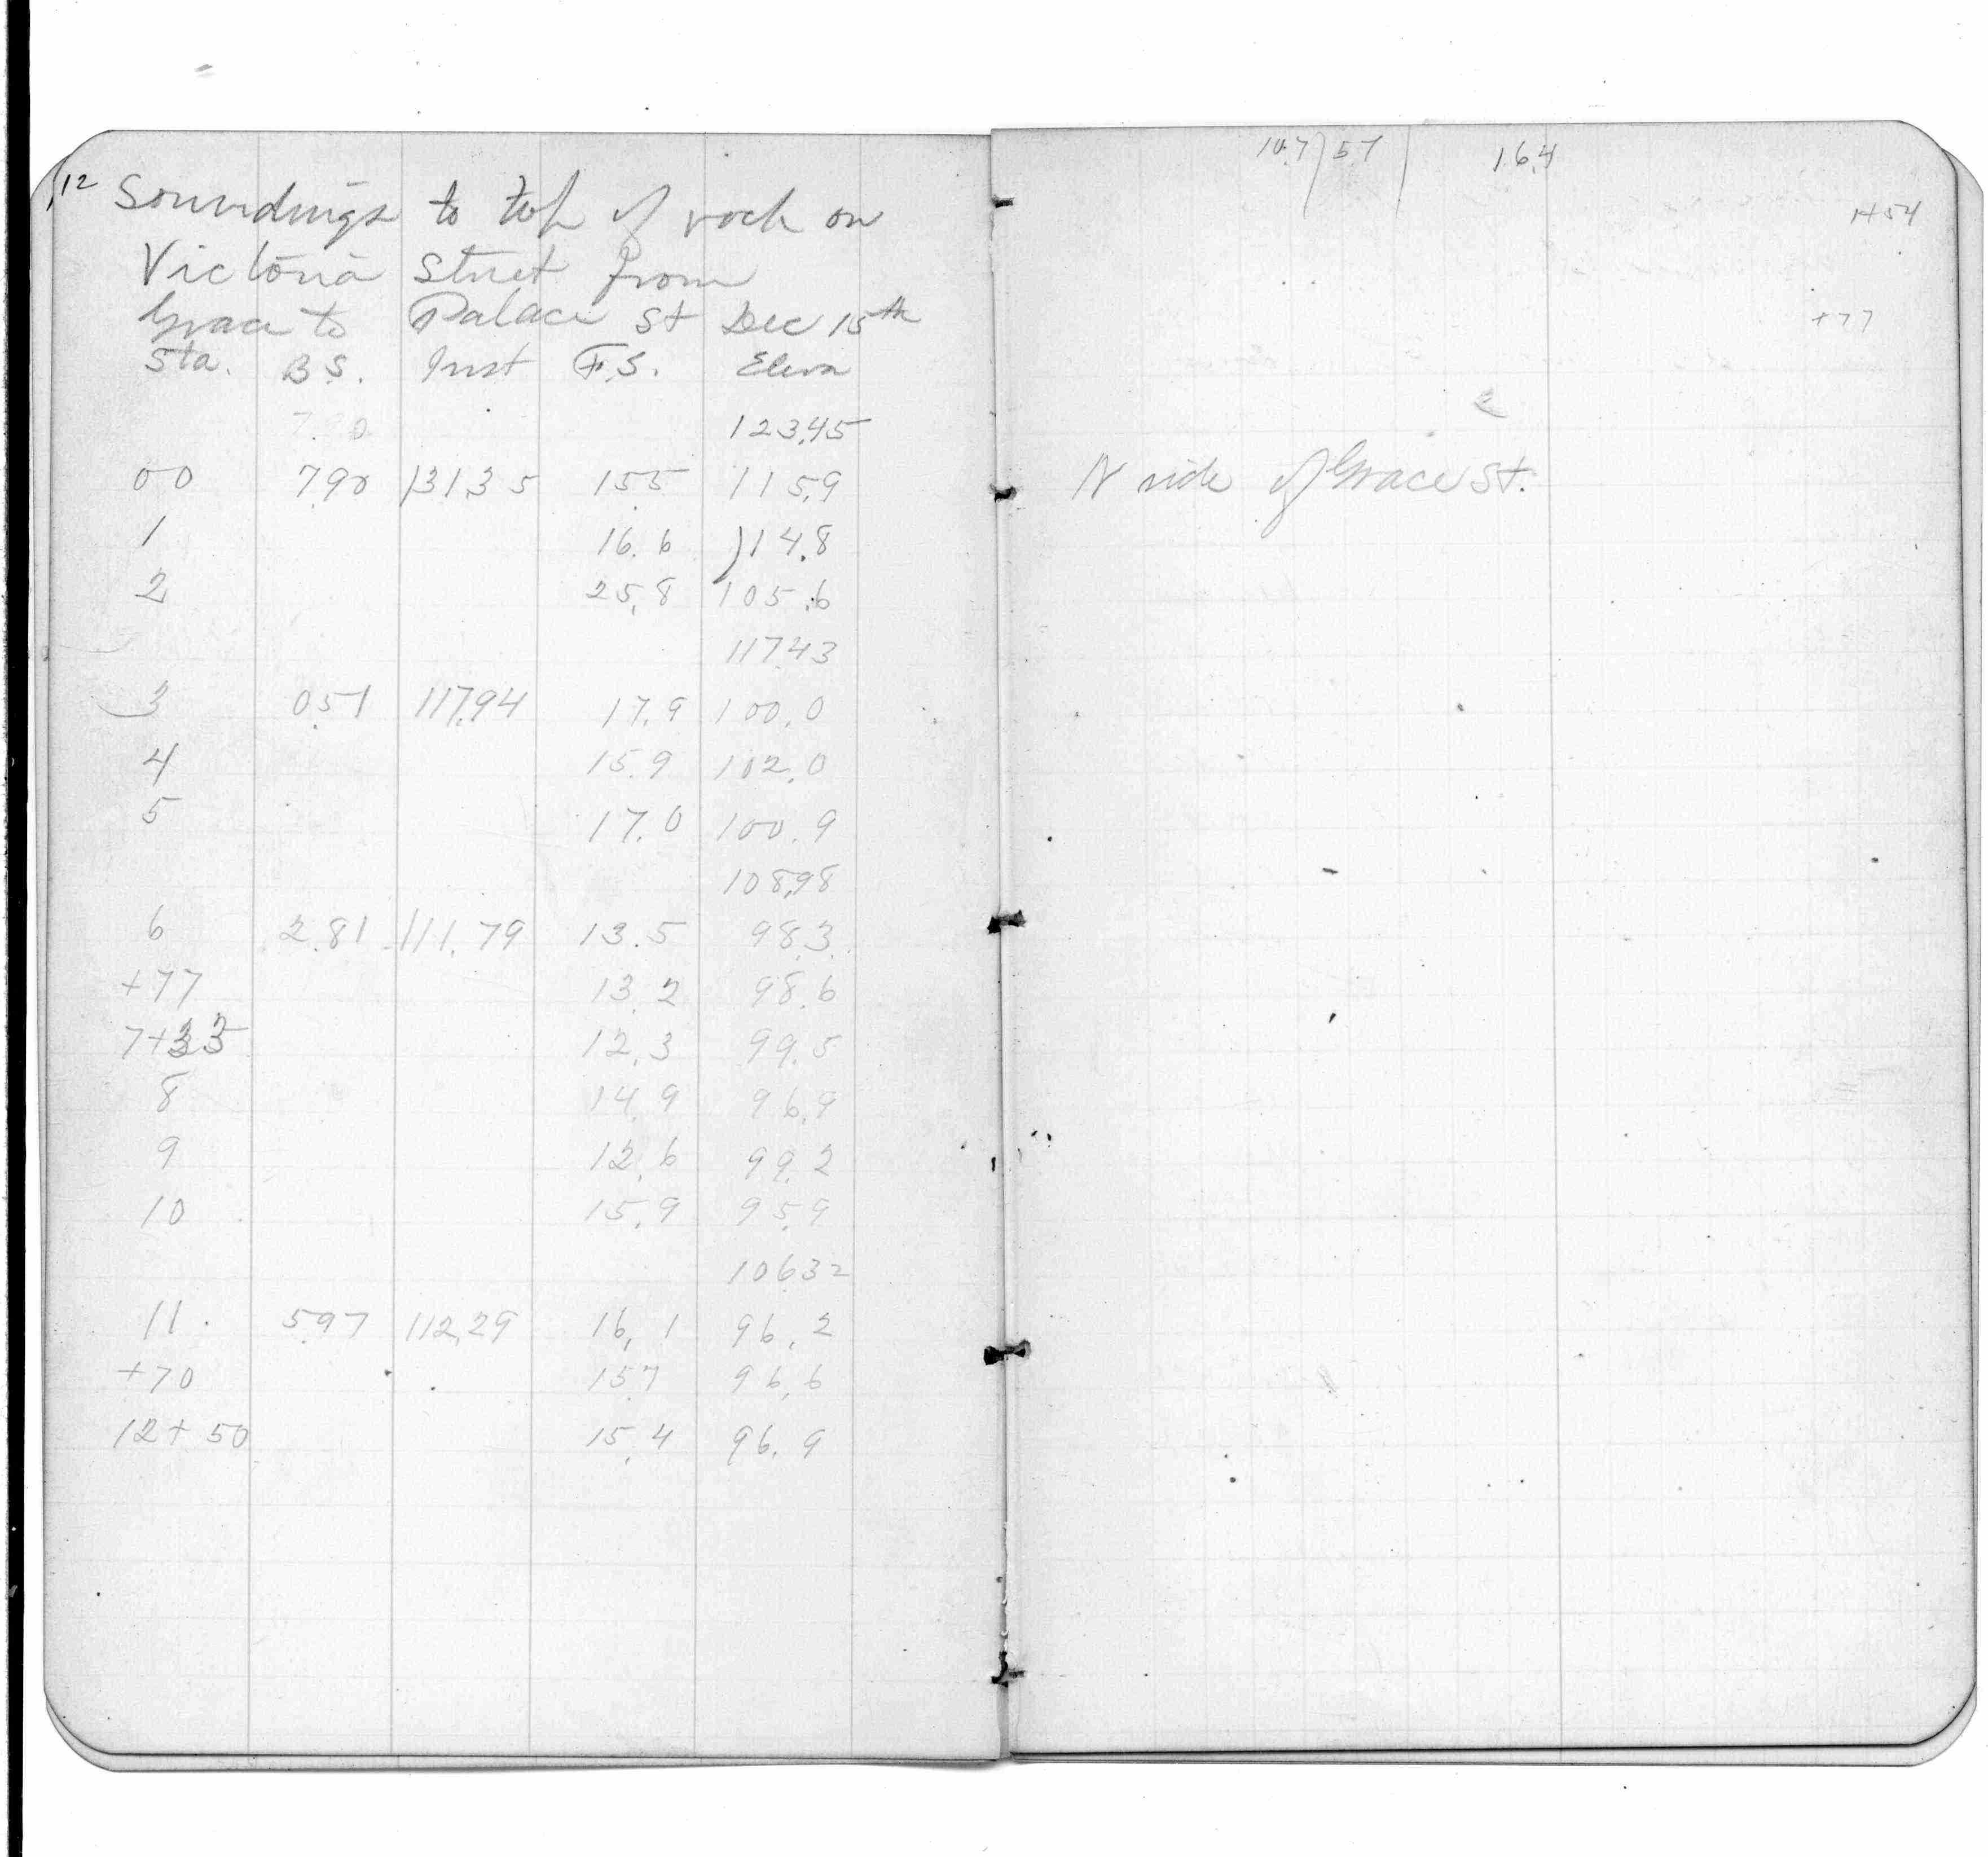 12
Soundings to top of rock on
Victoria Street from
Grace to Palace St Dec 15th
Sta. B.S. Inst F.S. Elevn
123.45
00 7.90 131.35 15.5 115.9
1 16.6 114.8
2 25.8 105.6
117.43
3 0.51 117.94 17.9 100.0
4 15.9 102.0
5 17.0 100.9
108.98
6 2.81 111.79 13.5 98.3
+77 13.2 98.6
7+33 12.3 99.5
8 14.9 96.9
9 12.6 99.2
10 15.9 95.9
106.32
11. 5.97 112.29 16.1 96.2
+70 15.7 96.6
12+50 15.4 96.9
10.7 57 16.4
+54
+77
N side of Grace St.